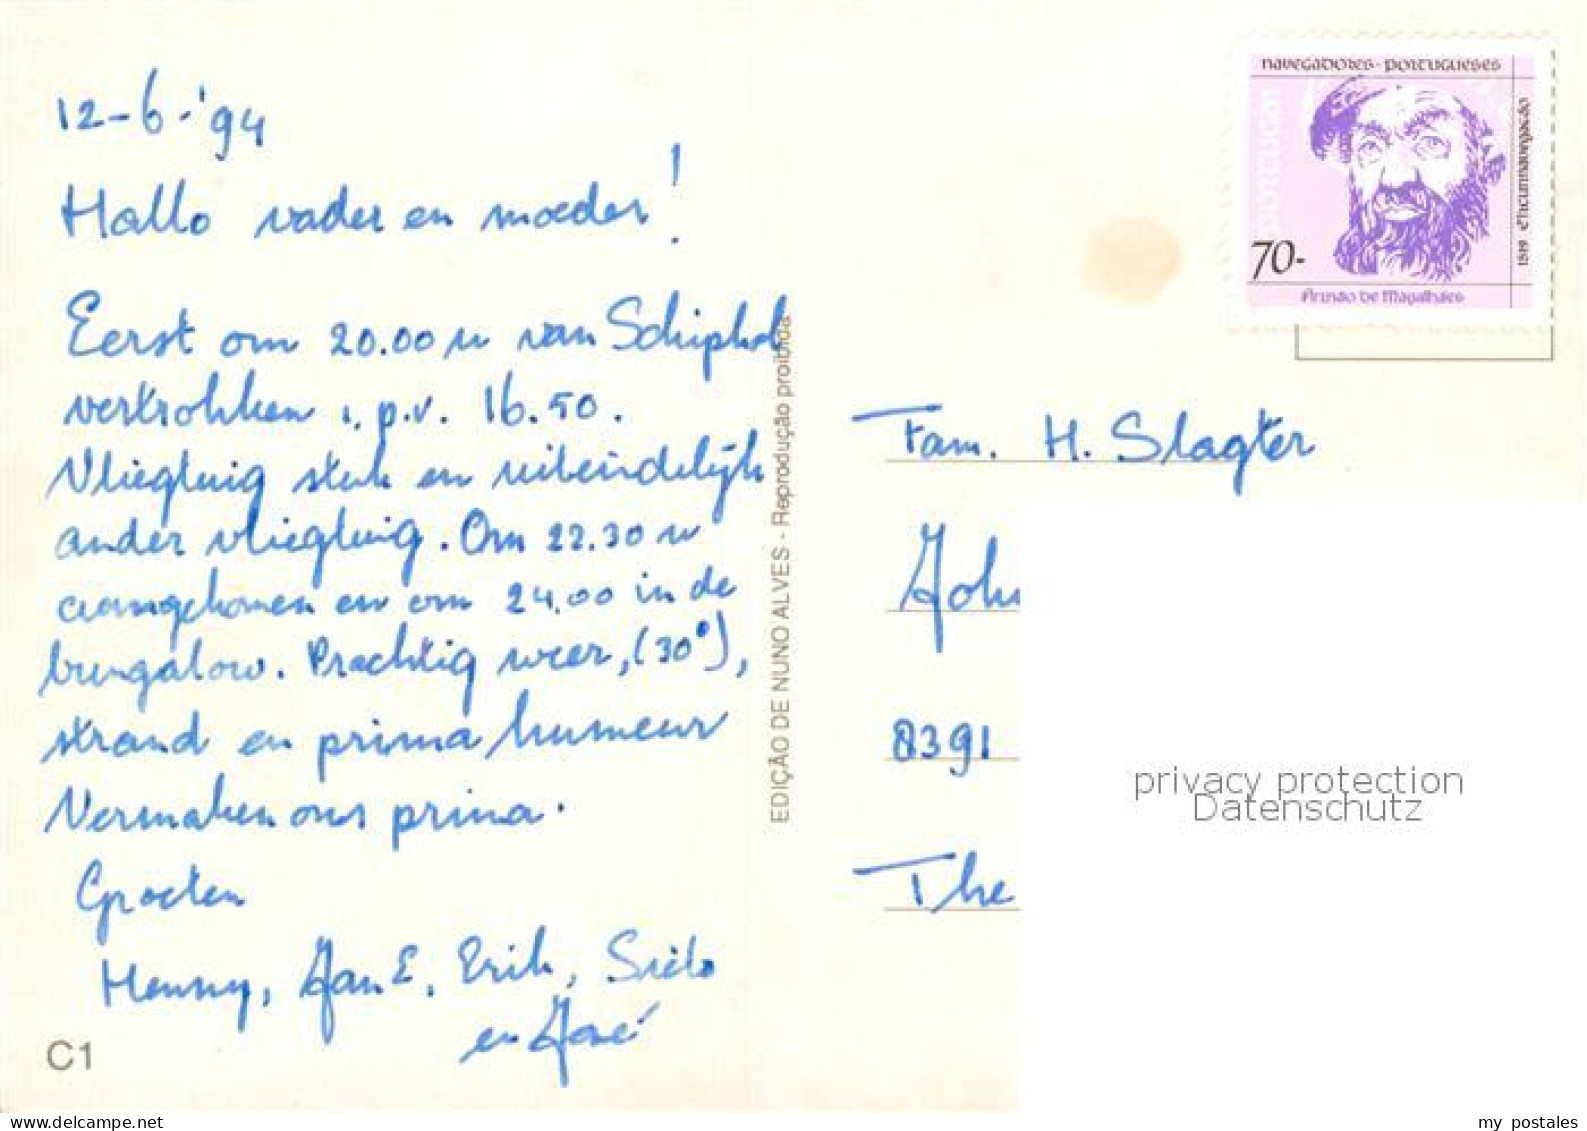 12-6-'94
Hallo vader en moeder!
Eerst om 20.00 u van Schiphol
vertrokken i.p.v. 16.50.
Vliegtuig stuk en uiteindelijk
ander vliegtuig. Om 22.30 u
aangekomen en om 24.00 in de
bungalow. Prachtig weer, (30°),
strand en prima humeur
Vermaken ons prima.
Groeten
Henny, Jan E, Erik, Sielo
en José
C1
EDIÇÃO DE NUNO ALVES - Reprodução proibida
NAVEGADORES - PORTUGUESES
PORTUGAL
70-
1519 Circumnavegação
Fernão de Magalhães
Fam. H. Slagter
Joh
8391
The
privacy protection
Datenschutz
delcampe.net
my postales